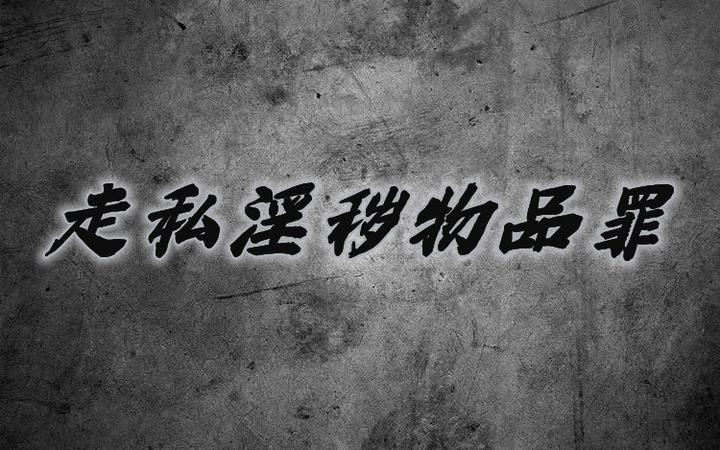 走私淫秽物品罪